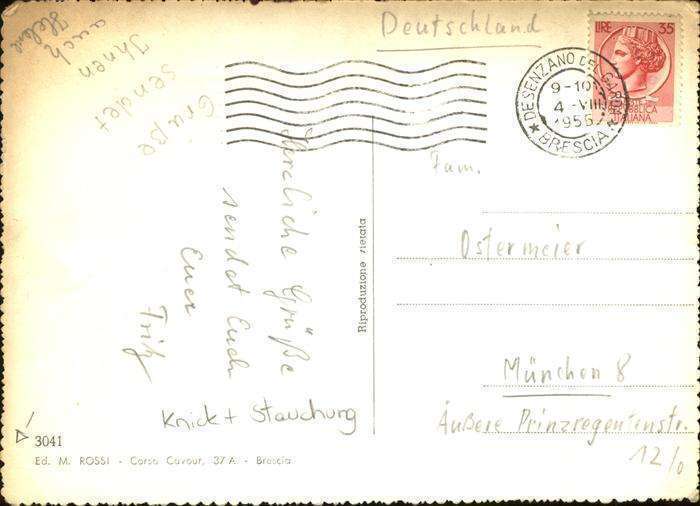 Deutschland
LIRE 35
REPUBBLICA
ITALIANA
DESENZANO DEL GARDA
9-10
4-VIII
1956
BRESCIA
Grüße
sendet
Ihnen
auch
Helene
Herzliche Grüße
sendet Euch
Euer
Fritz
Knick + Stauchung
Riproduzione vietata
Fam.
Ostermeier
München 8
Äußere Prinzregentenstr.
12/0
3041
Ed. M. ROSSI - Corso Cavour, 37 A. - Brescia